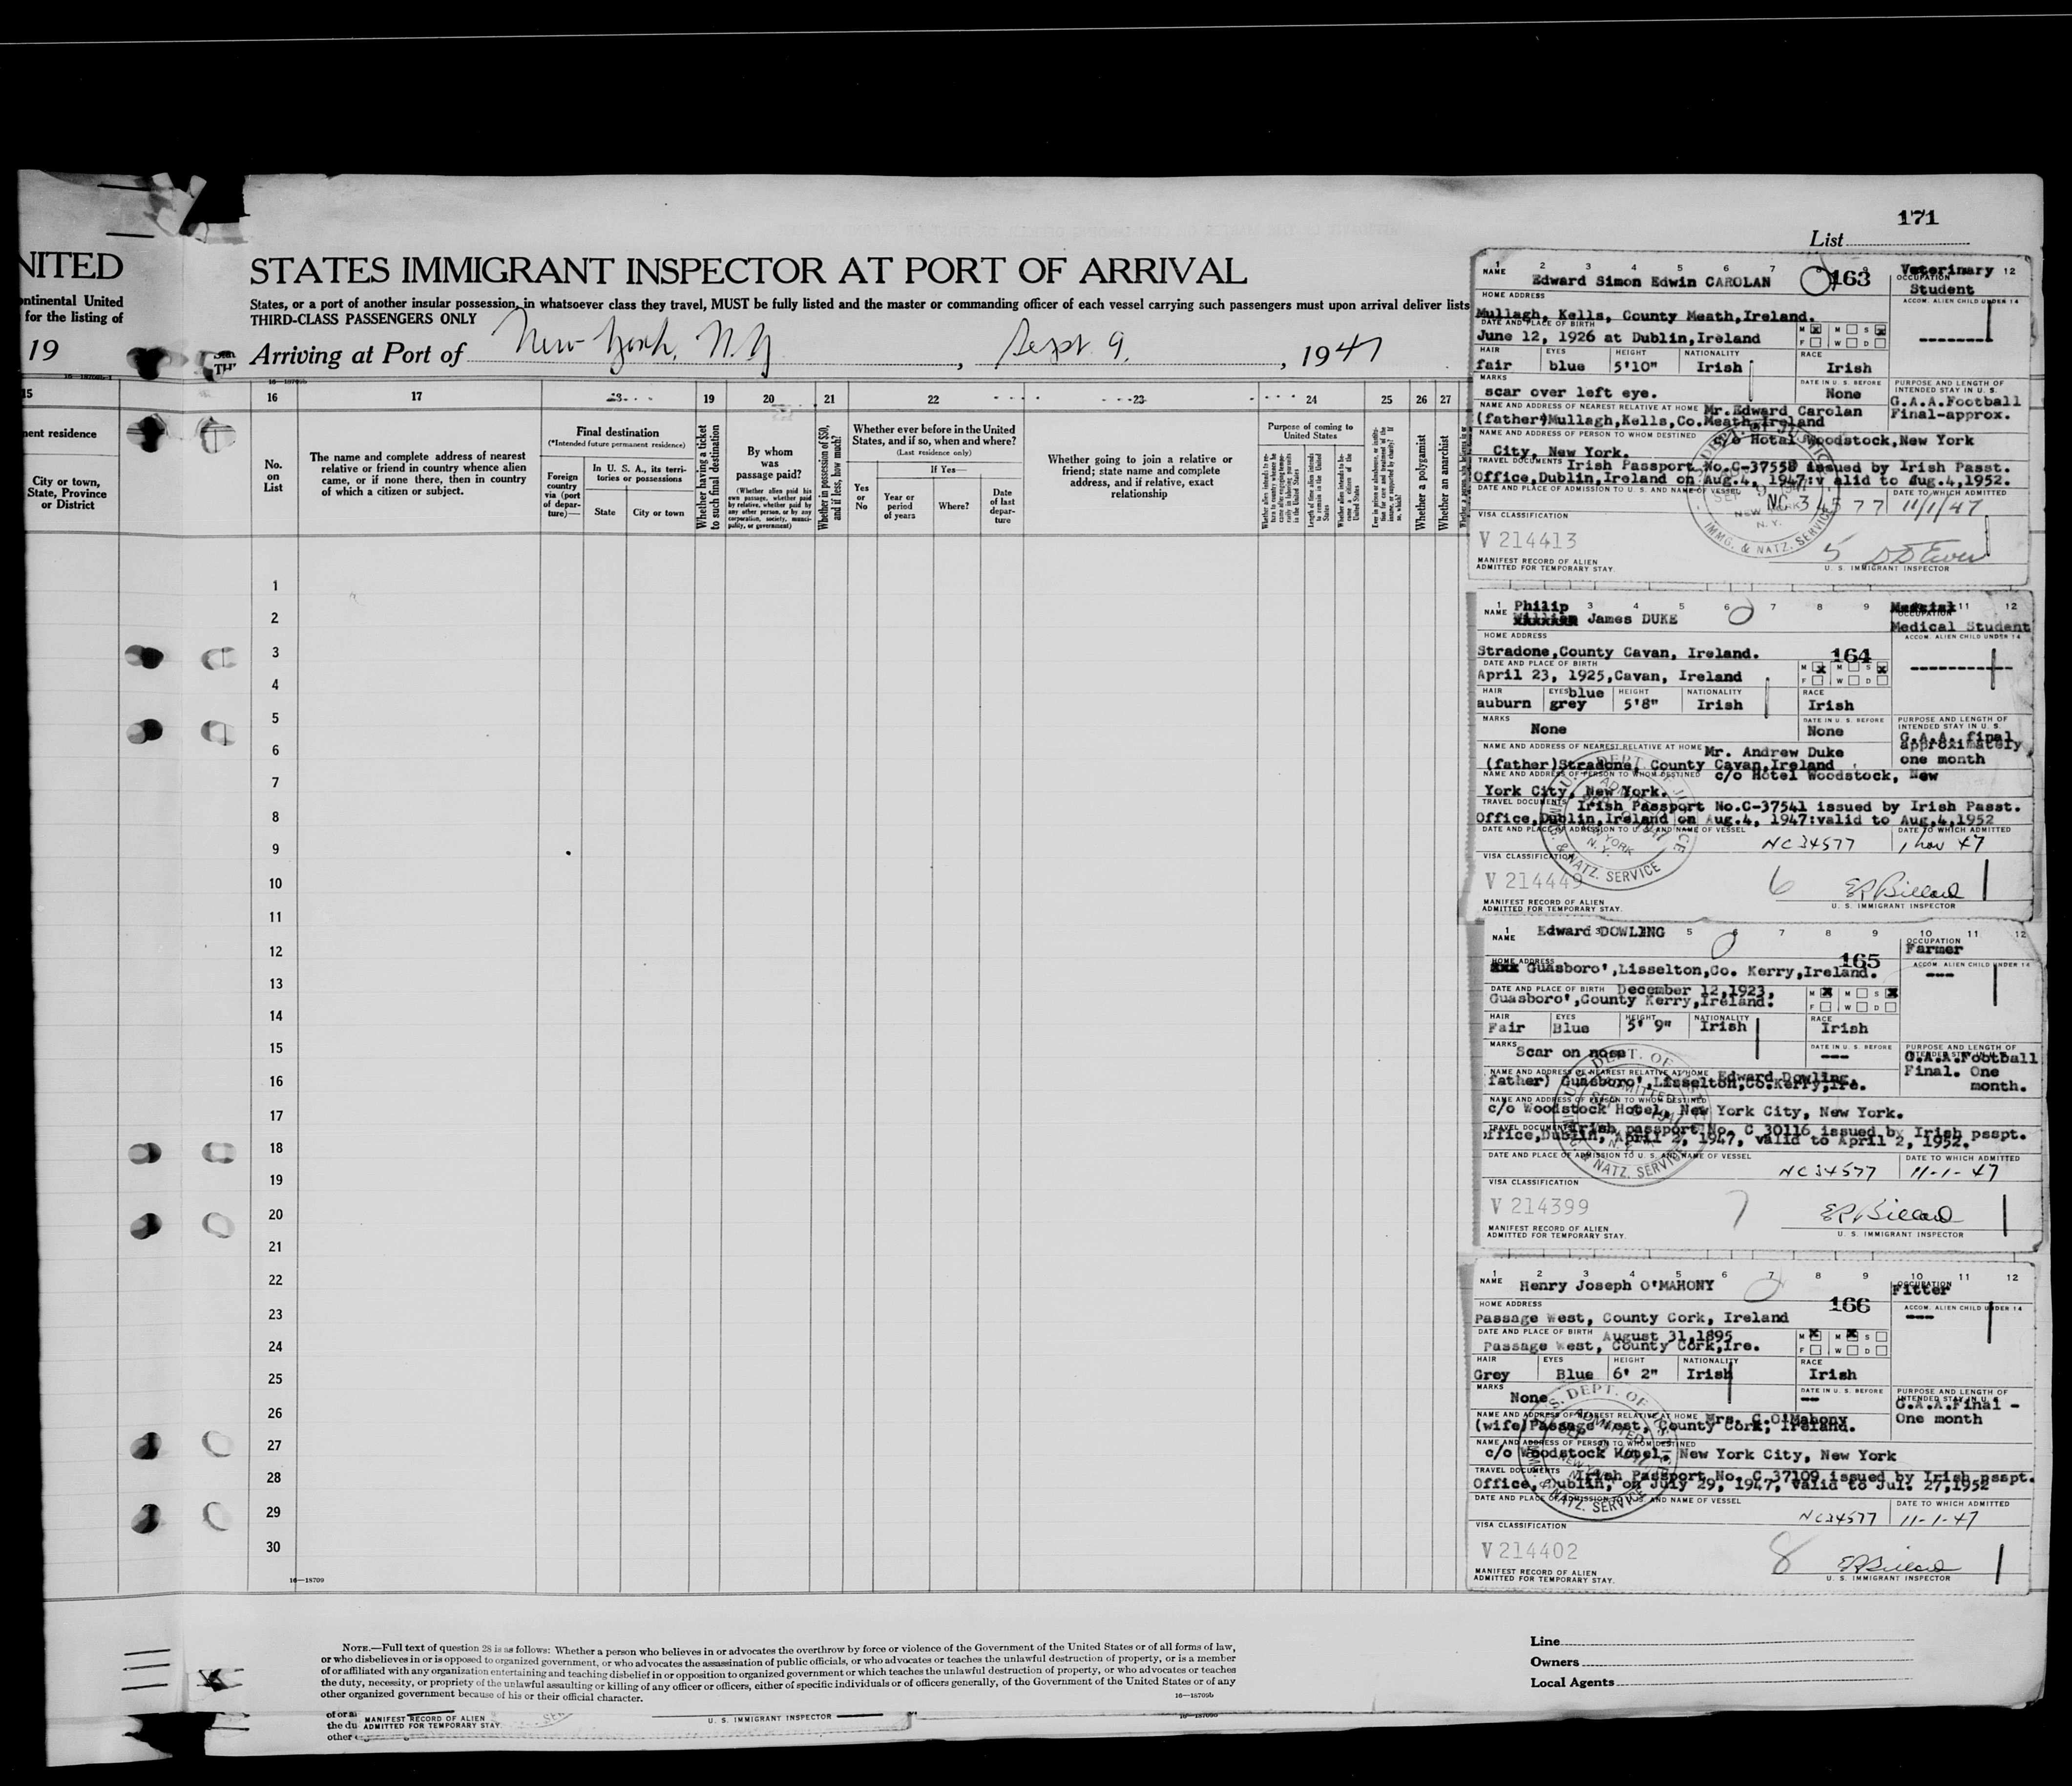 171
List
NITED
STATES IMMIGRANT INSPECTOR AT PORT OF ARRIVAL
ontinental United
for the listing of
States, or a port of another insular possession, in whatsoever class they travel, MUST be fully listed and the master or commanding officer of each vessel carrying such passengers must upon arrival deliver lists
THIRD-CLASS PASSENGERS ONLY
19
Arriving at Port of New York, N.Y , Sept 9, , 1947
15
ment residence
City or town,
State, Province
or District
16 17 19 20 21 22 23 24 25 26 27
No.
on
List
The name and complete address of nearest
relative or friend in country whence alien
came, or if none there, then in country
of which a citizen or subject.
Final destination
(*Intended future permanent residence)
Foreign
country
via (port
of depar-
ture)—
In U. S. A., its terri-
tories or possessions
State City or town
Whether having a ticket
to such final destination
By whom
was
passage paid?
(Whether alien paid his
own passage, whether paid
by relative, whether paid by
any other person, or by any
corporation, society, munici-
pality, or government)
Whether in possession of $50,
and if less, how much?
Whether ever before in the United
States, and if so, when and where?
(Last residence only)
Yes
or
No
If Yes—
Year or
period
of years
Where?
Date
of last
depar-
ture
Whether going to join a relative or
friend; state name and complete
address, and if relative, exact
relationship
Purpose of coming to
United States
Whether a polygamist
Whether an anarchist
1
2
3
4
5
6
7
8
9
10
11
12
13
14
15
16
17
18
19
20
21
22
23
24
25
26
27
28
29
30
16—18709
NOTE.—Full text of question 28 is as follows: Whether a person who believes in or advocates the overthrow by force or violence of the Government of the United States or of all forms of law,
or who disbelieves in or is opposed to organized government, or who advocates the assassination of public officials, or who advocates or teaches the unlawful destruction of property, or is a member
of or affiliated with any organization entertaining and teaching disbelief in or opposition to organized government or which teaches the unlawful destruction of property, or who advocates or teaches
the duty, necessity, or propriety of the unlawful assaulting or killing of any officer or officers, either of specific individuals or of officers generally, of the Government of the United States or of any
other organized government because of his or their official character.
16—18709b
of or a
the du
other
MANIFEST RECORD OF ALIEN
ADMITTED FOR TEMPORARY STAY.
U. S. IMMIGRANT INSPECTOR
Line
Owners
Local Agents
1 2 3 4 5 6 7 9 12
NAME Edward Simon Edwin CAROLAN 163
OCCUPATION Veterinary
Student
HOME ADDRESS
Mullagh, Kells, County Meath,Ireland.
ACCOM. ALIEN CHILD UNDER 14
DATE AND PLACE OF BIRTH
June 12, 1926 at Dublin,Ireland
M M S
F W D
HAIR EYES HEIGHT NATIONALITY RACE
fair blue 5'10" Irish Irish
MARKS
scar over left eye.
DATE IN U. S. BEFORE
None
PURPOSE AND LENGTH OF
INTENDED STAY IN U. S.
G.A.A.Football
Final-approx.
NAME AND ADDRESS OF NEAREST RELATIVE AT HOME Mr.Edward Carolan
(father)Mullagh,Kells,Co.Meath,Ireland
NAME AND ADDRESS OF PERSON TO WHOM DESTINED
c/o Hotel Woodstock,New York
City, New York.
TRAVEL DOCUMENTS Irish Passport No.C-37558 issued by Irish Passt.
Office,Dublin,Ireland on Aug.4, 1947:v alid to Aug.4,1952.
DATE AND PLACE OF ADMISSION TO U. S. AND NAME OF VESSEL
NC 34577
DATE TO WHICH ADMITTED
11/1/47
VISA CLASSIFICATION
V 214413
5
MANIFEST RECORD OF ALIEN
ADMITTED FOR TEMPORARY STAY.
U. S. IMMIGRANT INSPECTOR
IMMG. & NATZ. SERVICE
NEW YORK
N. Y.
1 3 4 5 6 7 8 9 11 12
NAME Philip
James DUKE
OCCUPATION
Medical Student
HOME ADDRESS
Stradone,County Cavan, Ireland.
164
ACCOM. ALIEN CHILD UNDER 14
DATE AND PLACE OF BIRTH
April 23, 1925,Cavan, Ireland
M M S
F W D
HAIR EYES HEIGHT NATIONALITY RACE
auburn blue grey 5'8" Irish Irish
MARKS
None
DATE IN U. S. BEFORE
None
PURPOSE AND LENGTH OF
INTENDED STAY IN U. S.
G.A.A. final
approximately
one month
NAME AND ADDRESS OF NEAREST RELATIVE AT HOME Mr. Andrew Duke
(father)Stradone, County Cavan,Ireland
NAME AND ADDRESS OF PERSON TO WHOM DESTINED c/o Hotel Woodstock, New
York City, New York.
TRAVEL DOCUMENTS Irish Passport No.C-37541 issued by Irish Passt.
Office,Dublin,Ireland on Aug.4, 1947:valid to Aug.4,1952
DATE AND PLACE OF ADMISSION TO U. S. AND NAME OF VESSEL
NC34577
DATE TO WHICH ADMITTED
1 Nov 47
VISA CLASSIFICATION
V 214449
6 E R Billard
MANIFEST RECORD OF ALIEN
ADMITTED FOR TEMPORARY STAY.
U. S. IMMIGRANT INSPECTOR
1 3 5 6 7 8 9 10 11 12
NAME Edward DOWLING
OCCUPATION
Farmer
165
HOME ADDRESS
Guasboro',Lisselton,Co. Kerry,Ireland.
ACCOM. ALIEN CHILD UNDER 14
DATE AND PLACE OF BIRTH December 12,1923,
Guasboro',County Kerry,Ireland.
M M S
F W D
HAIR EYES HEIGHT NATIONALITY RACE
Fair Blue 5' 9" Irish Irish
MARKS Scar on nose
DATE IN U. S. BEFORE
---
PURPOSE AND LENGTH OF
G.A.A.Football
Final. One
month.
NAME AND ADDRESS OF NEAREST RELATIVE AT HOME Edward Dowling,
father) Guasboro',Lisselton,Co.Kerry,Ire.
NAME AND ADDRESS OF PERSON TO WHOM DESTINED
c/o Woodstock Hotel, New York City, New York.
TRAVEL DOCUMENTS Irish passport No. C 30116 issued by Irish psspt.
office,Dublin, April 2, 1947, valid to April 2, 1952.
DATE AND PLACE OF ADMISSION TO U. S. AND NAME OF VESSEL
NC34577
DATE TO WHICH ADMITTED
11-1-47
VISA CLASSIFICATION
V 214399
7 E R Billard
MANIFEST RECORD OF ALIEN
ADMITTED FOR TEMPORARY STAY.
U. S. IMMIGRANT INSPECTOR
1 2 3 4 5 6 7 8 9 10 11 12
NAME Henry Joseph O'MAHONY
OCCUPATION
Fitter
166
HOME ADDRESS
Passage West, County Cork, Ireland
ACCOM. ALIEN CHILD UNDER 14
---
DATE AND PLACE OF BIRTH August 31,1895
Passage West, County Cork,Ire.
M M S
F W D
HAIR EYES HEIGHT NATIONALITY RACE
Grey Blue 6' 2" Irish Irish
MARKS None
DATE IN U. S. BEFORE
---
PURPOSE AND LENGTH OF
INTENDED STAY IN U. S.
G.A.A.Final -
One month
NAME AND ADDRESS OF NEAREST RELATIVE AT HOME Mrs. C.O'Mahony
(wife)Passage West, County Cork, Ireland.
NAME AND ADDRESS OF PERSON TO WHOM DESTINED
c/o Woodstock Hotel, New York City, New York
TRAVEL DOCUMENTS Irish Passport No. C 37109 issued by Irish psspt.
Office, Dublin, on July 29, 1947, valid to Jul. 27,1952
DATE AND PLACE OF ADMISSION TO U. S. AND NAME OF VESSEL
NC34577
DATE TO WHICH ADMITTED
11-1-47
VISA CLASSIFICATION
V 214402
8 E R Billard
MANIFEST RECORD OF ALIEN
ADMITTED FOR TEMPORARY STAY.
U. S. IMMIGRANT INSPECTOR